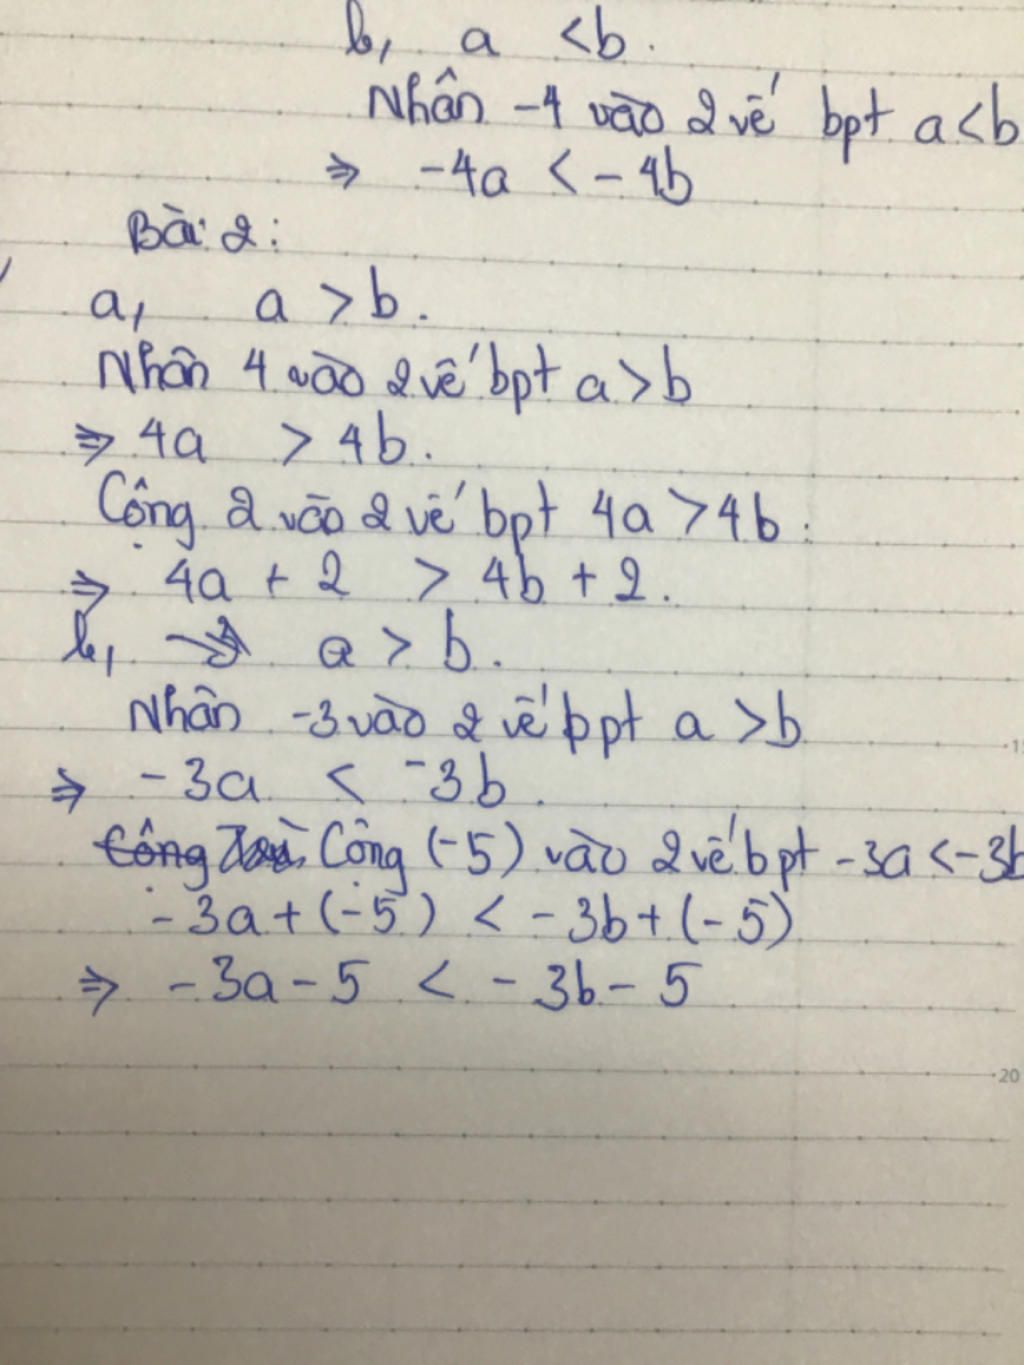 b, a < b.
Nhân -4 vào 2 vế bpt a<b
⇒ -4a < -4b
Bài 2:
a, a > b.
Nhân 4 vào 2 vế bpt a>b
⇒ 4a > 4b.
Cộng 2 vào 2 vế bpt 4a>4b:
⇒ 4a + 2 > 4b + 2.
b, a > b.
Nhân -3 vào 2 vế bpt a >b
⇒ -3a < -3b.
Cộng Cộng (-5) vào 2 vế bpt -3a<-3b
-3a+(-5) < -3b+(-5)
⇒ -3a-5 < -3b-5
20